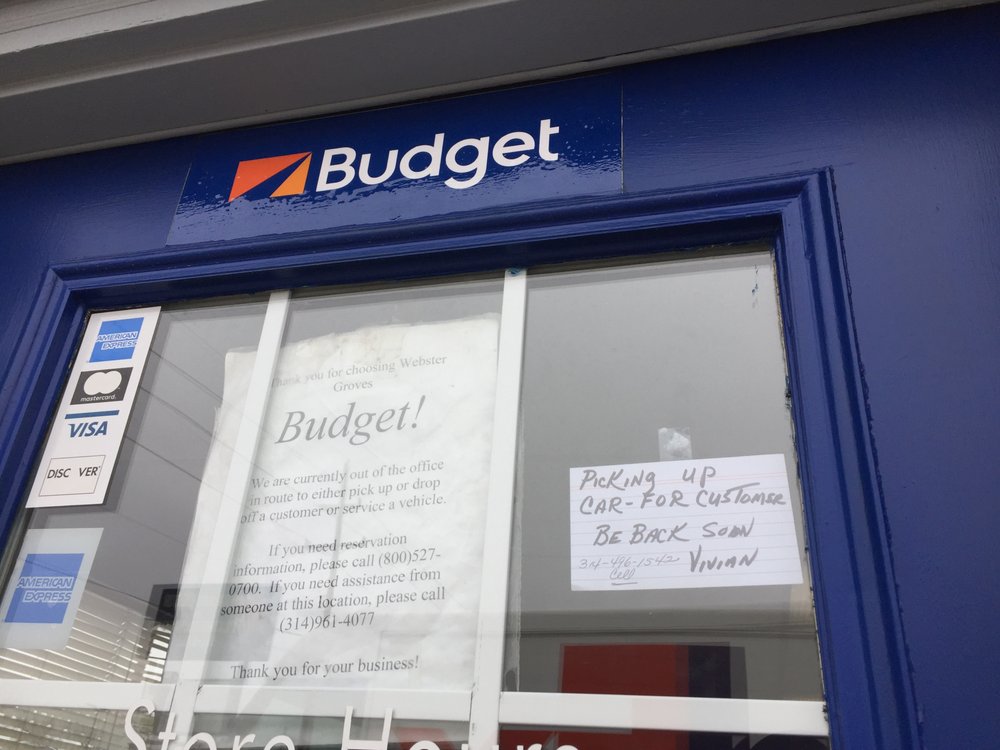 Budget
AMERICAN
EXPRESS
mastercard.
VISA
DISC VER
AMERICAN
EXPRESS
Thank you for choosing Webster
Groves
Budget!
We are currently out of the office
in route to either pick up or drop
off a customer or service a vehicle.
If you need reservation
information, please call (800)527-
0700. If you need assistance from
someone at this location, please call
(314)961-4077
Thank you for your business!
PICKING UP
CAR-FOR CUSTOMER
BE BACK SOON
314-496-1542 VIVIAN
Cell
Store Hours